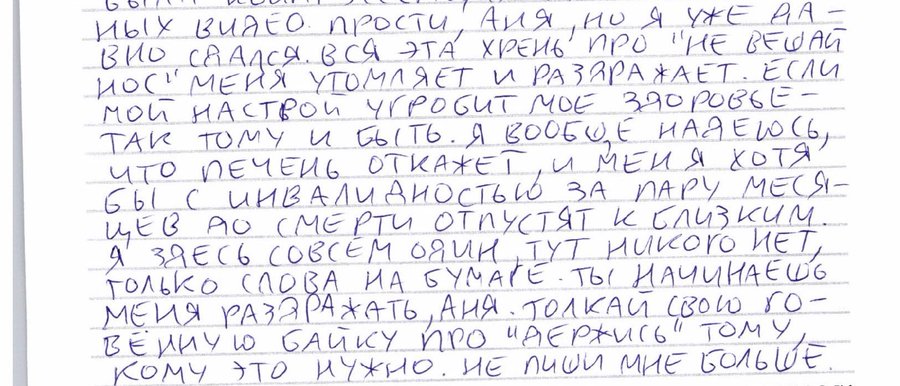 ных видео. Прости, Аня, но я уже да-
вно сдался. Вся эта хрень про "не вешай
нос" меня утомляет и раздражает. Если
мой настрой угробит мое здоровье-
так тому и быть. Я вообще надеюсь,
что печень откажет, и меня хотя
бы с инвалидностью за пару меся-
цев до смерти отпустят к близким.
Я здесь совсем один, тут никого нет,
только слова на бумаге. Ты начинаешь
меня раздражать, Аня. Толкай свою го-
вённую байку про "держись" тому,
кому это нужно. Не пиши мне больше.